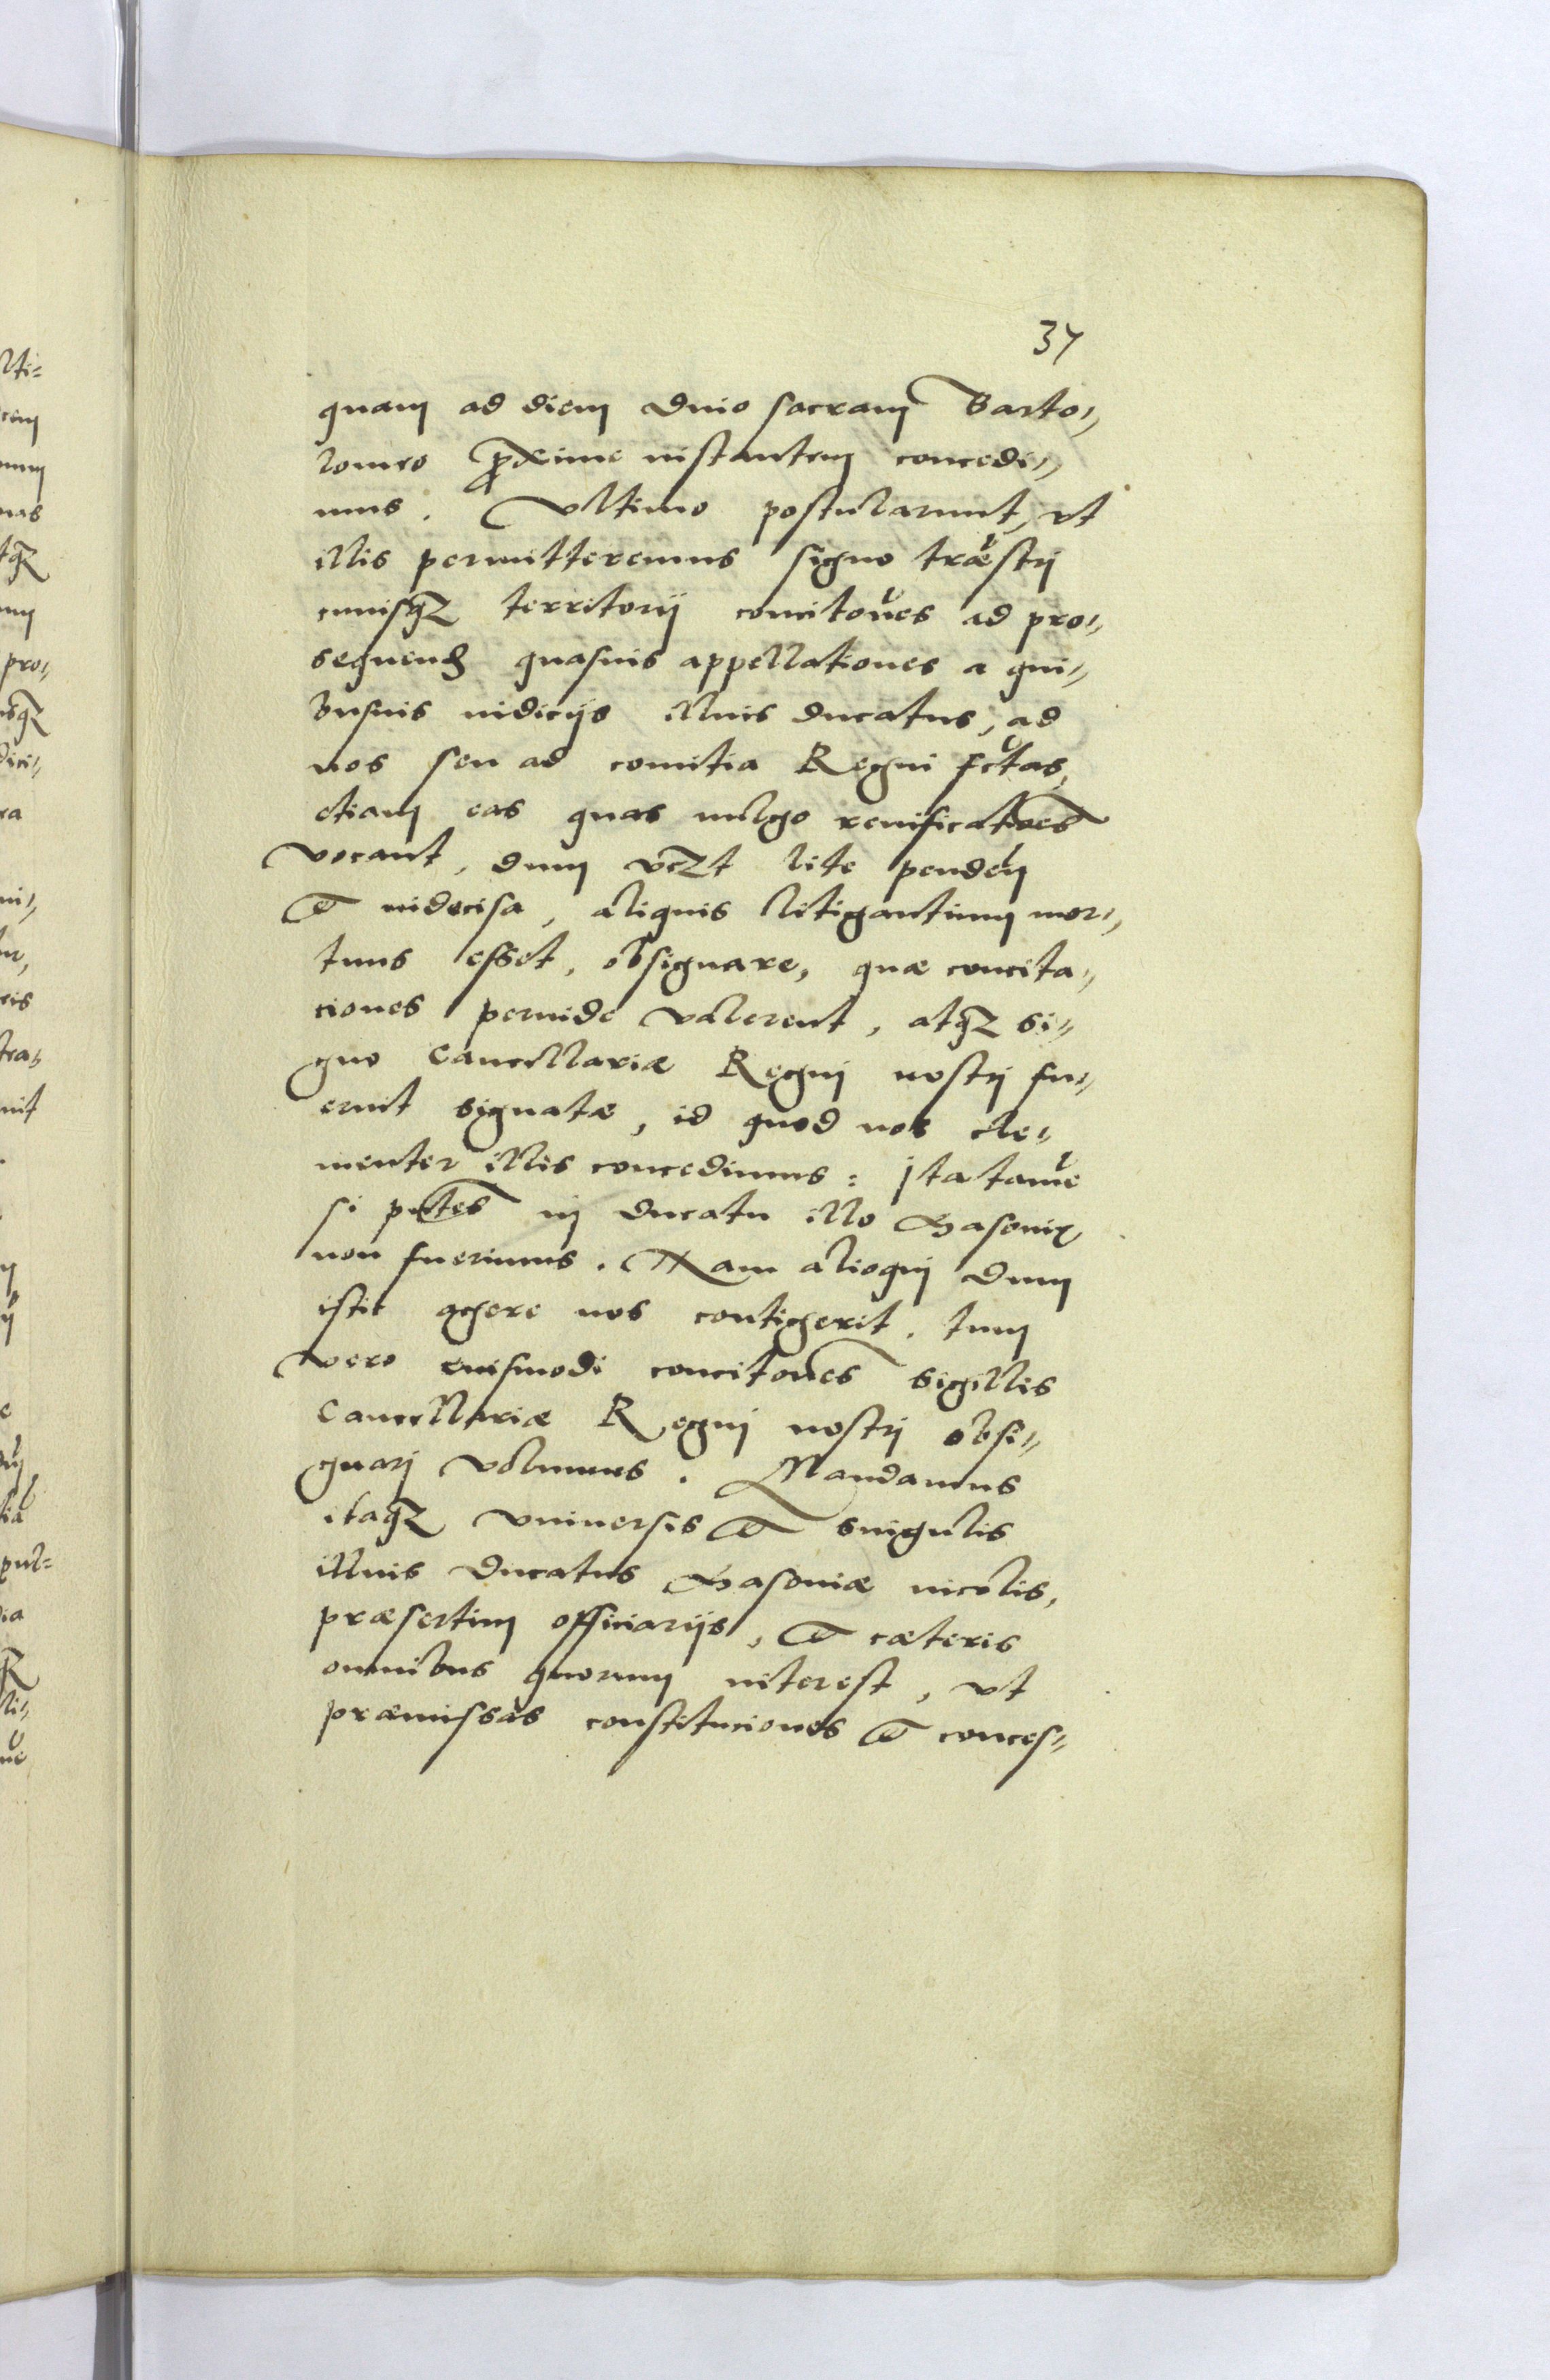 34
quam ad diem Diuo sacram Barto„
lomeo proxime instantem concedi„
mus. Vltimo postularunt, vt
illis permitteremus signo træstri
cuiusq₃ territorij concitones ad pro„
sequend quasuis appellationes a qui„
busuis iudicijs illius ducatus, ad
nos seu ad comitia Regni fctas,
etiam eas quas uulgo reuificatioes
vocant, dum vczt lite penden
et indecisa, aliquis litigantium mor„
tuus esset, obsignare, quæ concita„
ciones perinde valerent, atq₃ si„
gno Cancellariæ Regnj nostrj fu„
erint signatæ, id quod nos cle„
menter illis concedimus: Ita tame
si pntes in ducatu illo Masouiæ
non fuerimus. Nam alioqui dum
istic agere nos contigerit, tum
vero eiusmodi concitones sigillis
Cancellariæ Regnj nostrj obsi„
gnarj volumus. Mandamus
itaq₃ vniuersis et singulis
illius Ducatus Masouiæ incolis,
præsertim officiarijs, et cæteris
omnibus quorum interest, vt
præmissas constituciones et conces„